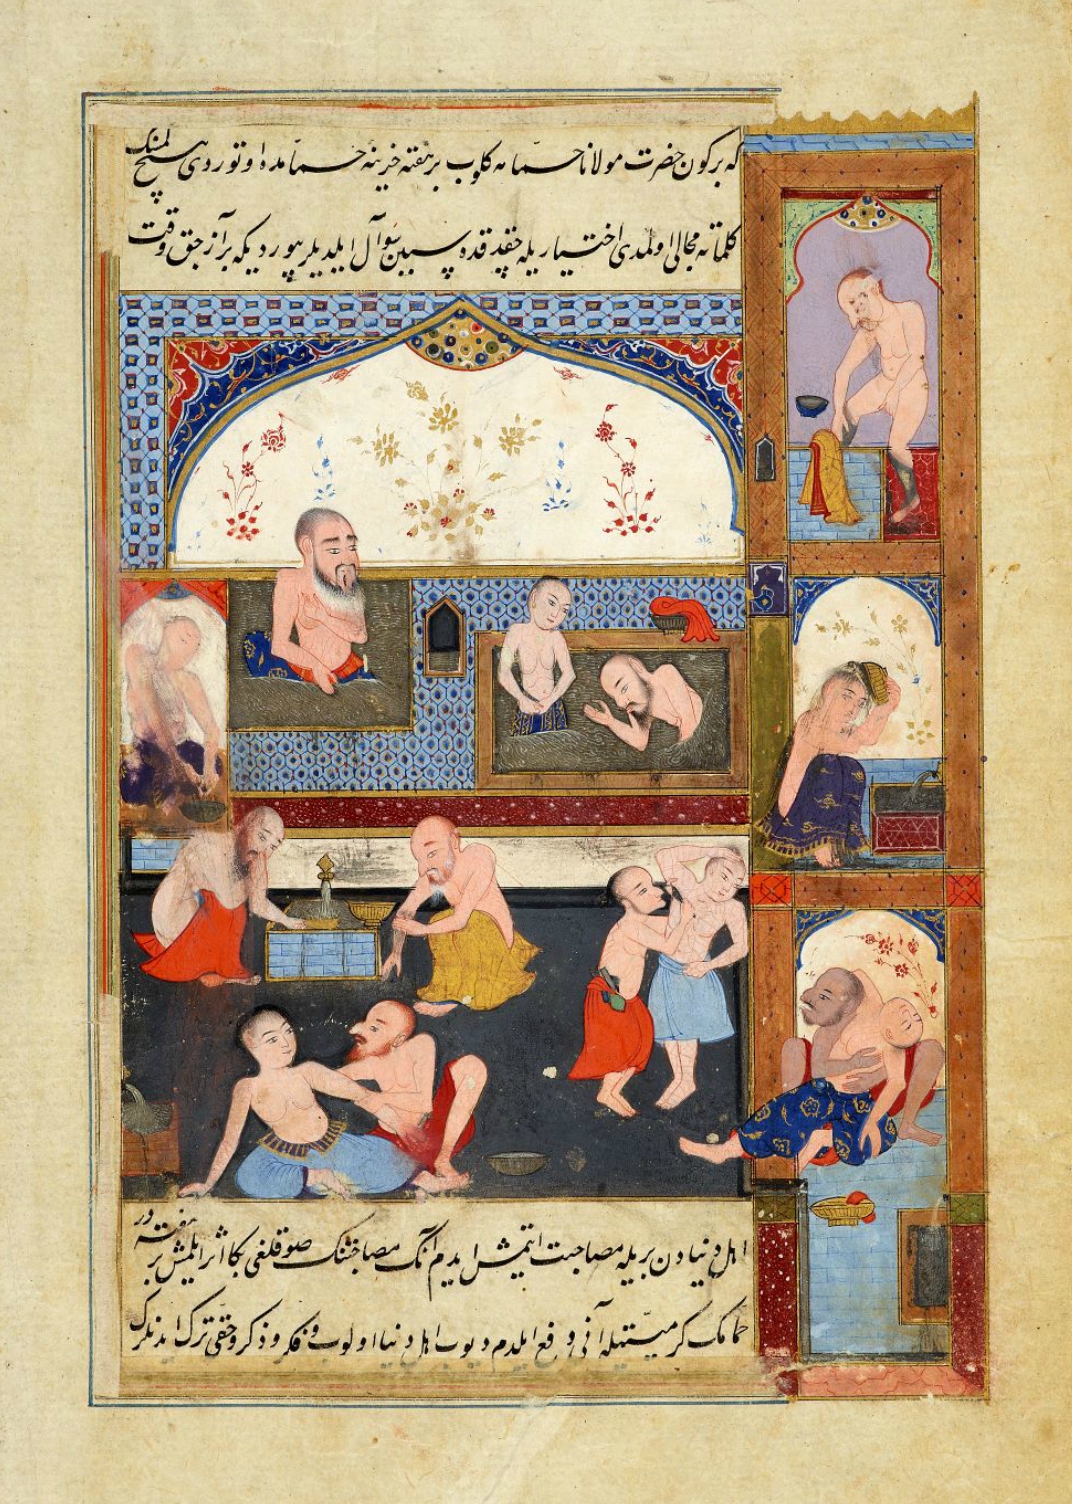 که برکون حضرت مولانا حمامه کلوب بر هفته خزینه حمامده اوتوردی هیچ کمسنک
کلماته مجالی اولمدی اختیاریله چقدقده سببین سوآل ایلدیلر بیوردیکه برآز جق وقت
اهل دنیادن بریله مصاحبت ایتمش ایدم آنک مصاحبتنک صوقلغی بکا اثر ایلمش بر هفته در
حمامک کرمیتیله آنی دفع ایلدم دیوب اهل دنیا اولوب و فکر و ذکر حقی ترک ایدنلرک